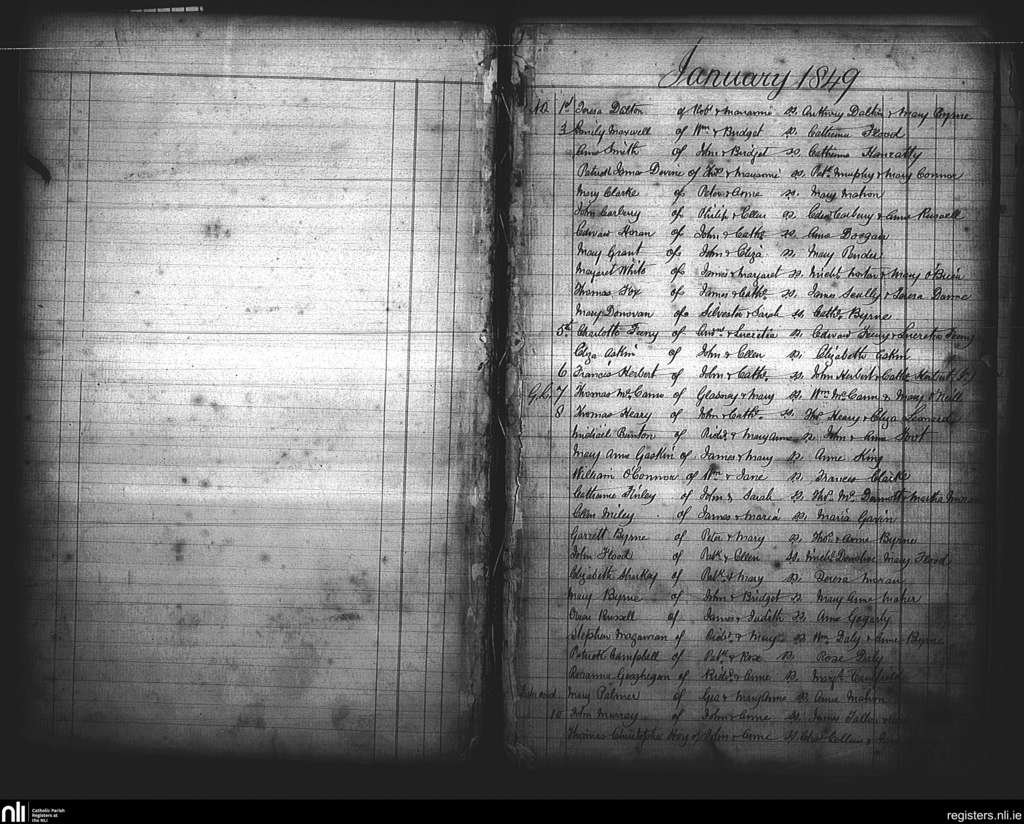 January 1849
1st Teresa Dalton of Robt & Marianne Sp. Anthony Dalton & Mary Byrne
3 Emily Maxwell of Wm & Bridget Sp. Catherine Flood
Anne Smith of John & Bridget Sp. Catherine Hanratty
Patrick James Devine of Thos & Maryanne Sp. Patk Murphy & Mary Connor
Mary Clarke of Peter & Anne Sp. Mary Mahon
John Carberry of Philip & Ellen Sp. Edwd Carberry & Anne Russell
Edward Horan of John & Cathe Sp. Anne Doogan
Mary Grant of John & Eliza Sp. Mary Pender
Margaret White of James & Margaret Sp. Michl & Mary O'Brien
Thomas Fox of James & Cathe Sp. James Scully & Teresa
Mary Donovan of Silvester & Sarah Sp. Cathe Byrne
5th Charlotte Feeny of & Lucretia Sp. Edward Feeny & Lucretia Feeny
Eliza Askin of John & Ellen Sp. Elizabeth
6 Francis Herbert of John & Cathe Sp. John Herbert & Cathe Herbert
G.C. 7 Thomas McCann of Glasney & Mary Sp. Wm McCann & Mary O'Neill
8 Thomas Heary of John & Cathe Sp. Thos Heary & Eliza Leonard
Michael of Richd & Mary Anne Sp. John & Anne
Mary Anne Gaskin of James & Mary Sp. Anne King
William O'Connor of Wm & Jane Sp. Frances Clarke
Catherine Finley of John & Sarah Sp. Thos McDermott & Martha
Ellen Miley of James & Maria Sp. Maria Gavin
Garrett Byrne of Peter & Mary Sp. Thos & Anne Byrne
John Flood of Patk & Ellen Sp. Michl Donohoe Mary Flood
Elizabeth Sharkey of Patk & Mary Sp. Teresa Moran
Mary Byrne of John & Bridget Sp. Mary Anne Maher
Owen Russell of James & Judith Sp. Anne Gogarty
Stephen of Richd & Mary Sp. Wm Daly & Anne Byrne
Patrick Campbell of Patk & Rose Sp. Rose Daly
Rosanna Geoghegan of Richd & Anne Sp. Margt
Mary Palmer of Geo & Mary Anne Sp. Anne Mahon
10 John Murray of John & Anne Sp. James
Thomas Christopher Hoey of John & Anne Sp.
nli
Catholic Parish
Registers at
the NLI
registers.nli.ie